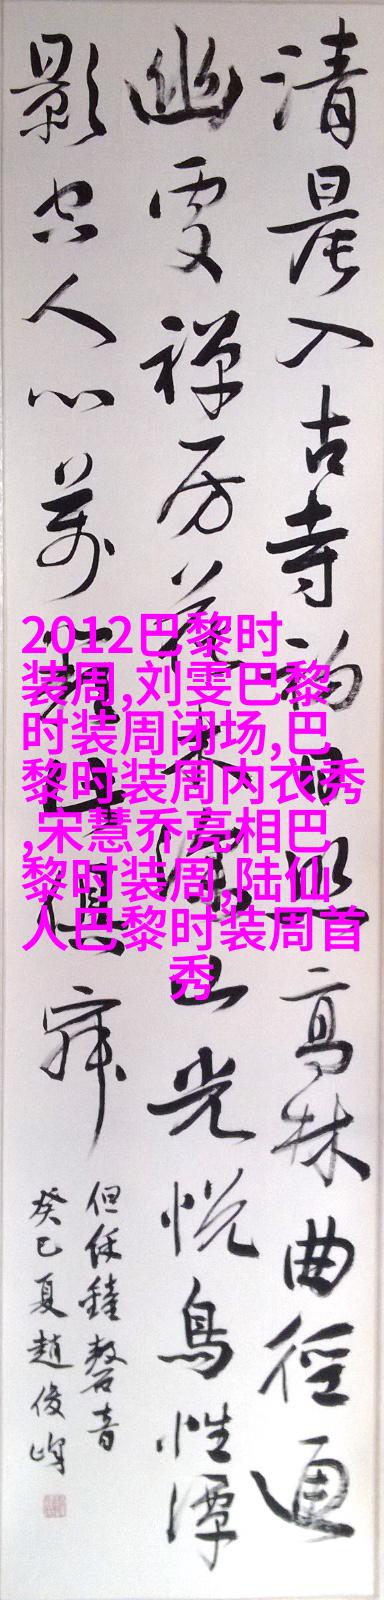 清晨入古寺初日照高林曲徑通
幽處禅房花木深山光悦鳥性潭
影空人心萬籟此俱寂
但餘鐘磬音
癸巳夏趙俊峰
2012巴黎时
装周,刘雯巴黎
时装周闭场,巴
黎时装周内衣秀
,宋慧乔亮相巴
黎时装周,陆仙
人巴黎时装周首
秀